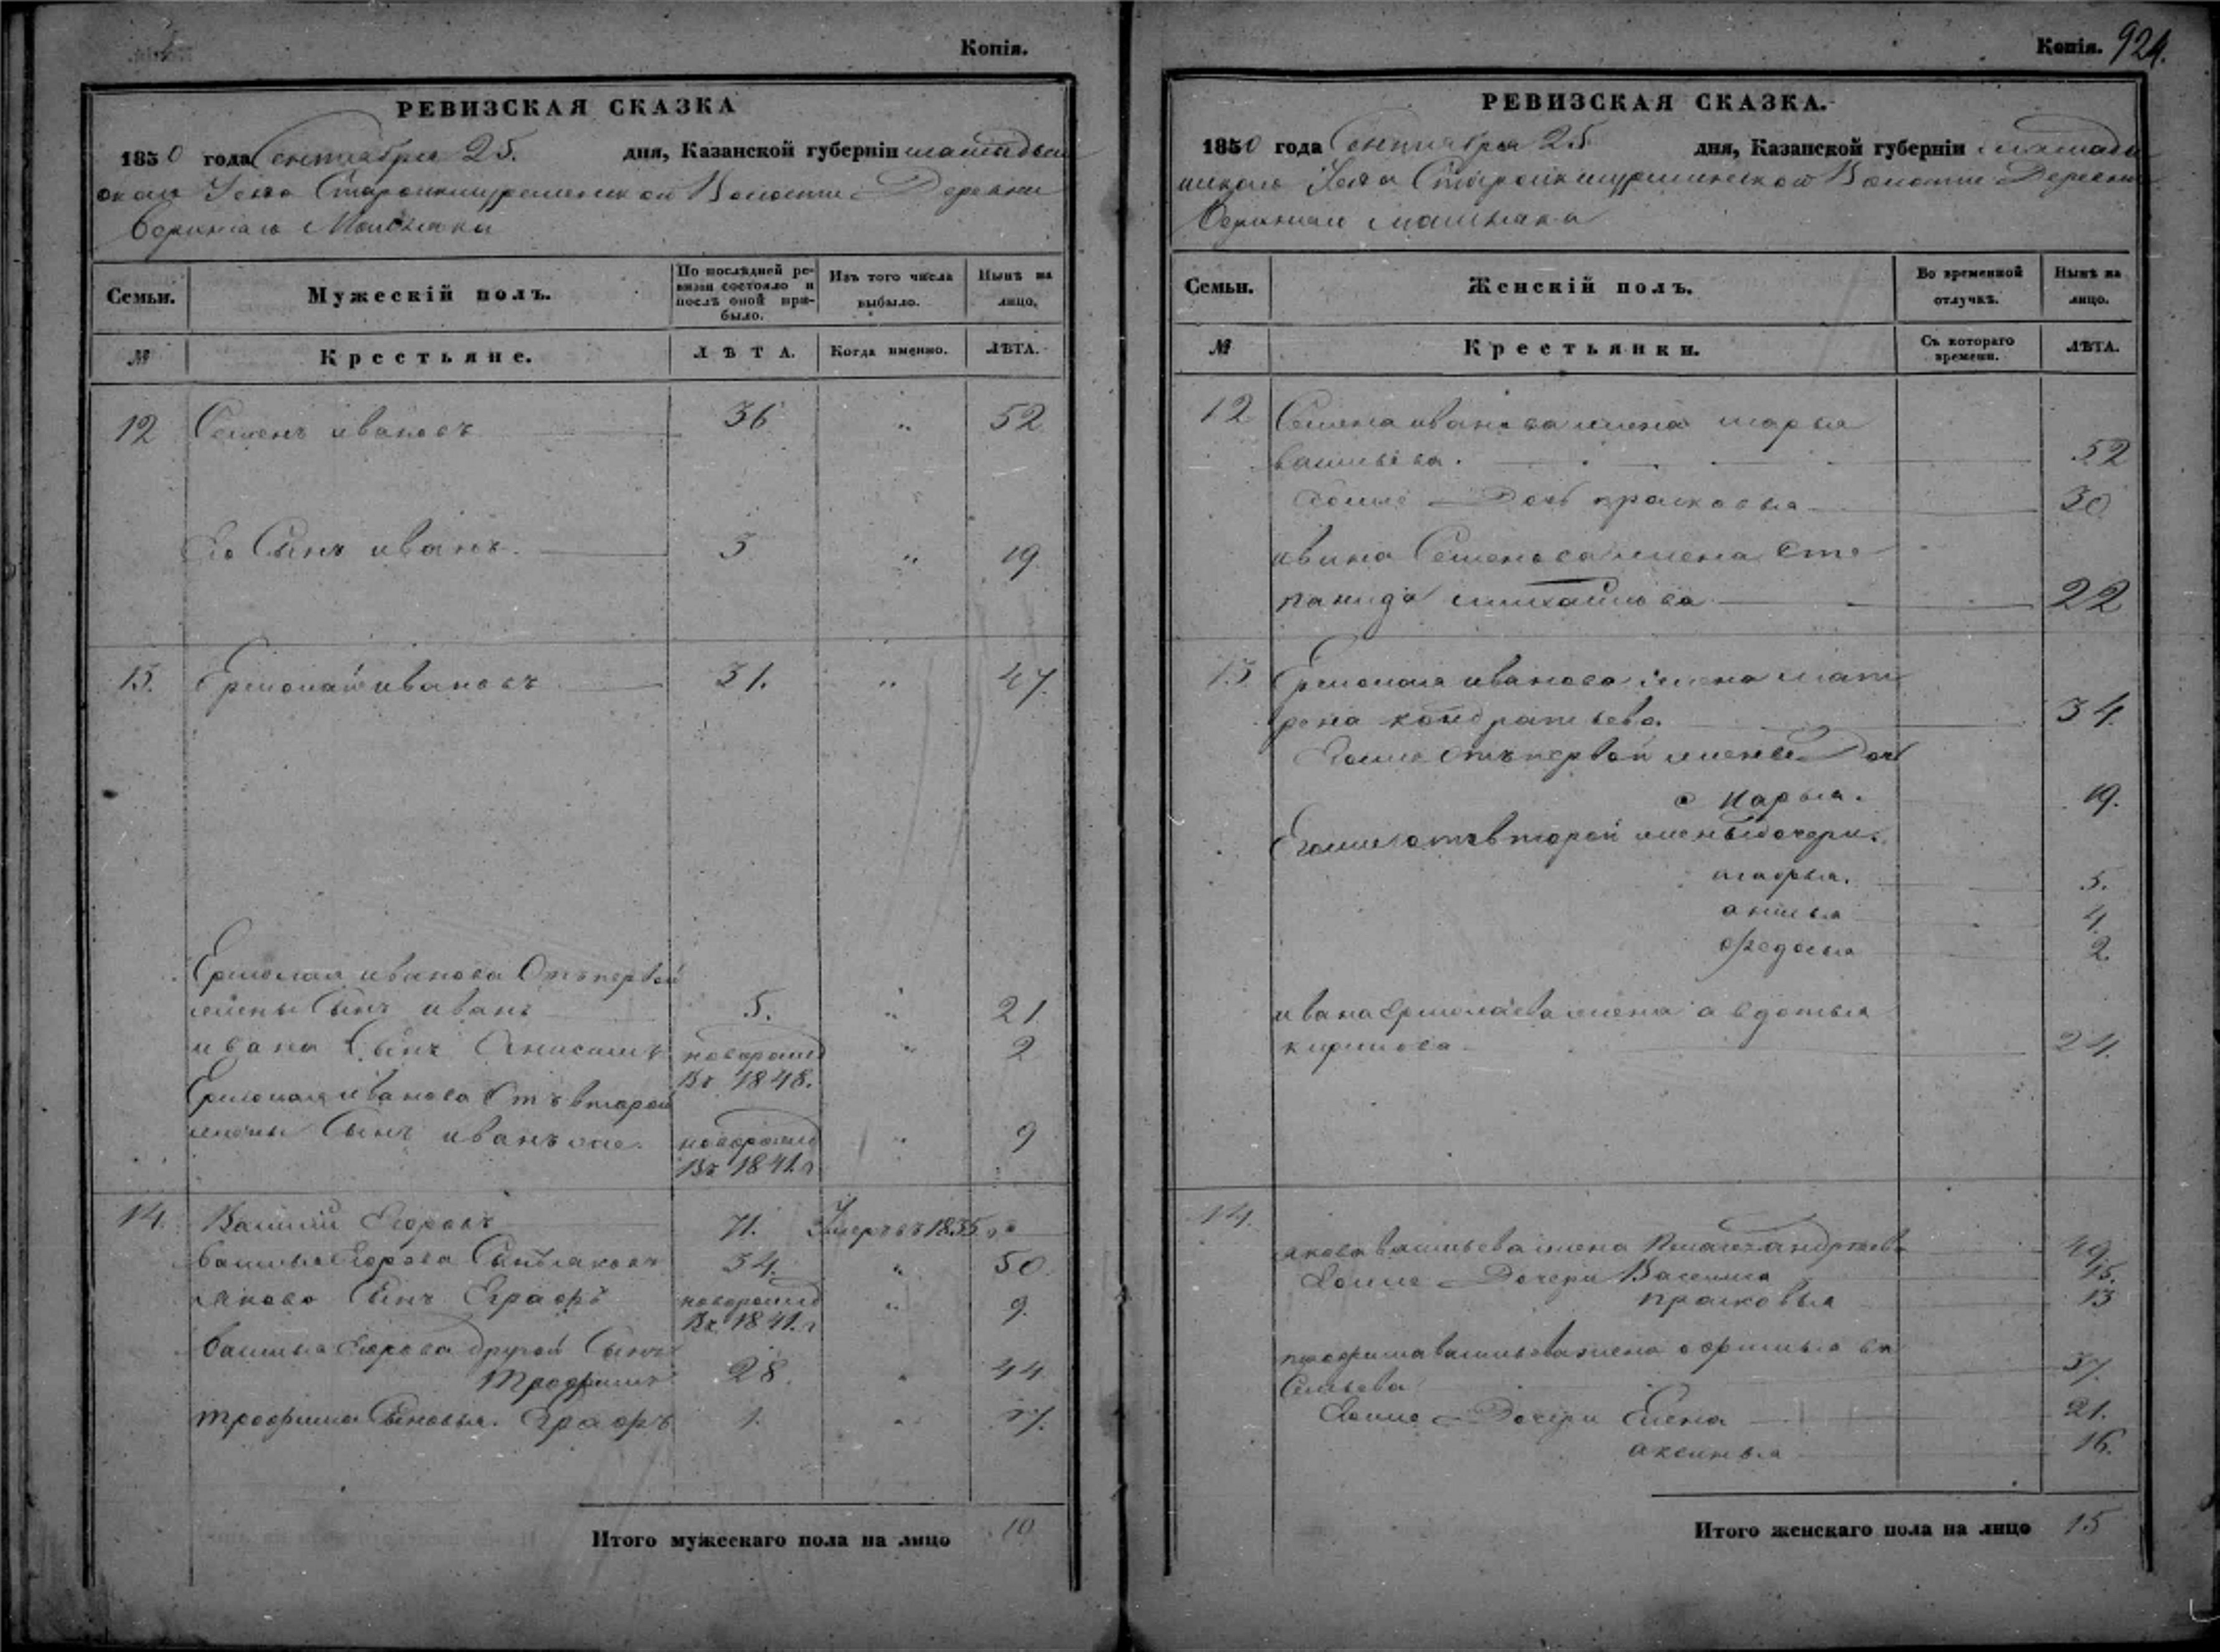 Копія.
РЕВИЗСКАЯ СКАЗКА
1850 года Сентября 25. дня, Казанской губерніи мамадыш
скаго Уезда Волости Деревни
Верхняго Машляка
Семьи.
Мужескій полъ.
По послѣдней ре-
визіи состояло и
послѣ оной при-
было.
Изъ того числа
выбыло.
Нынѣ на
лицо.
№
Крестьяне.
ЛѢТА.
Когда именно.
ЛѢТА.
12 Семенъ ивановъ 36 " 52
Его Сынъ иванъ. 3 " 19.
13. Ермолай ивановъ 31. " 47.
Ермолая иванова Отъ первой
жены Сынъ иванъ 5. " 21
ивана Сынъ Анисимъ новорожд " 2
Въ 1848.
Ермолая иванова Отъ второй
жены Сынъ иванъ же. новорожд " 9
Въ 1841 г
14. Василий Егоровъ 71. Умеръ въ 1835 г "
василья Егорова Сынъ яковъ 34. " 50.
якова Сынъ Еграфъ новорожд " 9.
Въ 1841. г
василья Егорова другой Сынъ
Трофимъ 28. " 44
трофима Сыновья. Еграфъ 1. " 17.
Итого мужескаго пола на лицо 10
Копія. 924.
РЕВИЗСКАЯ СКАЗКА.
1850 года Сентября 25 дня, Казанской губерніи мамады
шскаго Уезда Волости Деревни
Верхняго машляка
Семьи.
Женскій полъ.
Во временной
отлучкѣ.
Нынѣ на
лицо.
№
Крестьянки.
Съ котораго
времени.
ЛѢТА.
12 Семена иванова жена марья
васильева. 52
Его же Дочь прасковья 30
ивана Семенова жена Сте
панида михайлова 22
13 Ермолая иванова жена мат
рена кондратьева. 34.
Его же отъ первой жены Дочь
марья. 19.
Его же отъ второй жены дочери.
агафья. 5.
анна 4
федосья 2.
ивана Ермолаева жена авдотья
кирилова 24.
14.
якова васильева жена 49.
Его же Дочери Василиса 15.
прасковья 13
трофима васильева жена офимья ва
сильева 37.
Его же Дочери Елена 21.
аксинья 16.
Итого женскаго пола на лицо 15